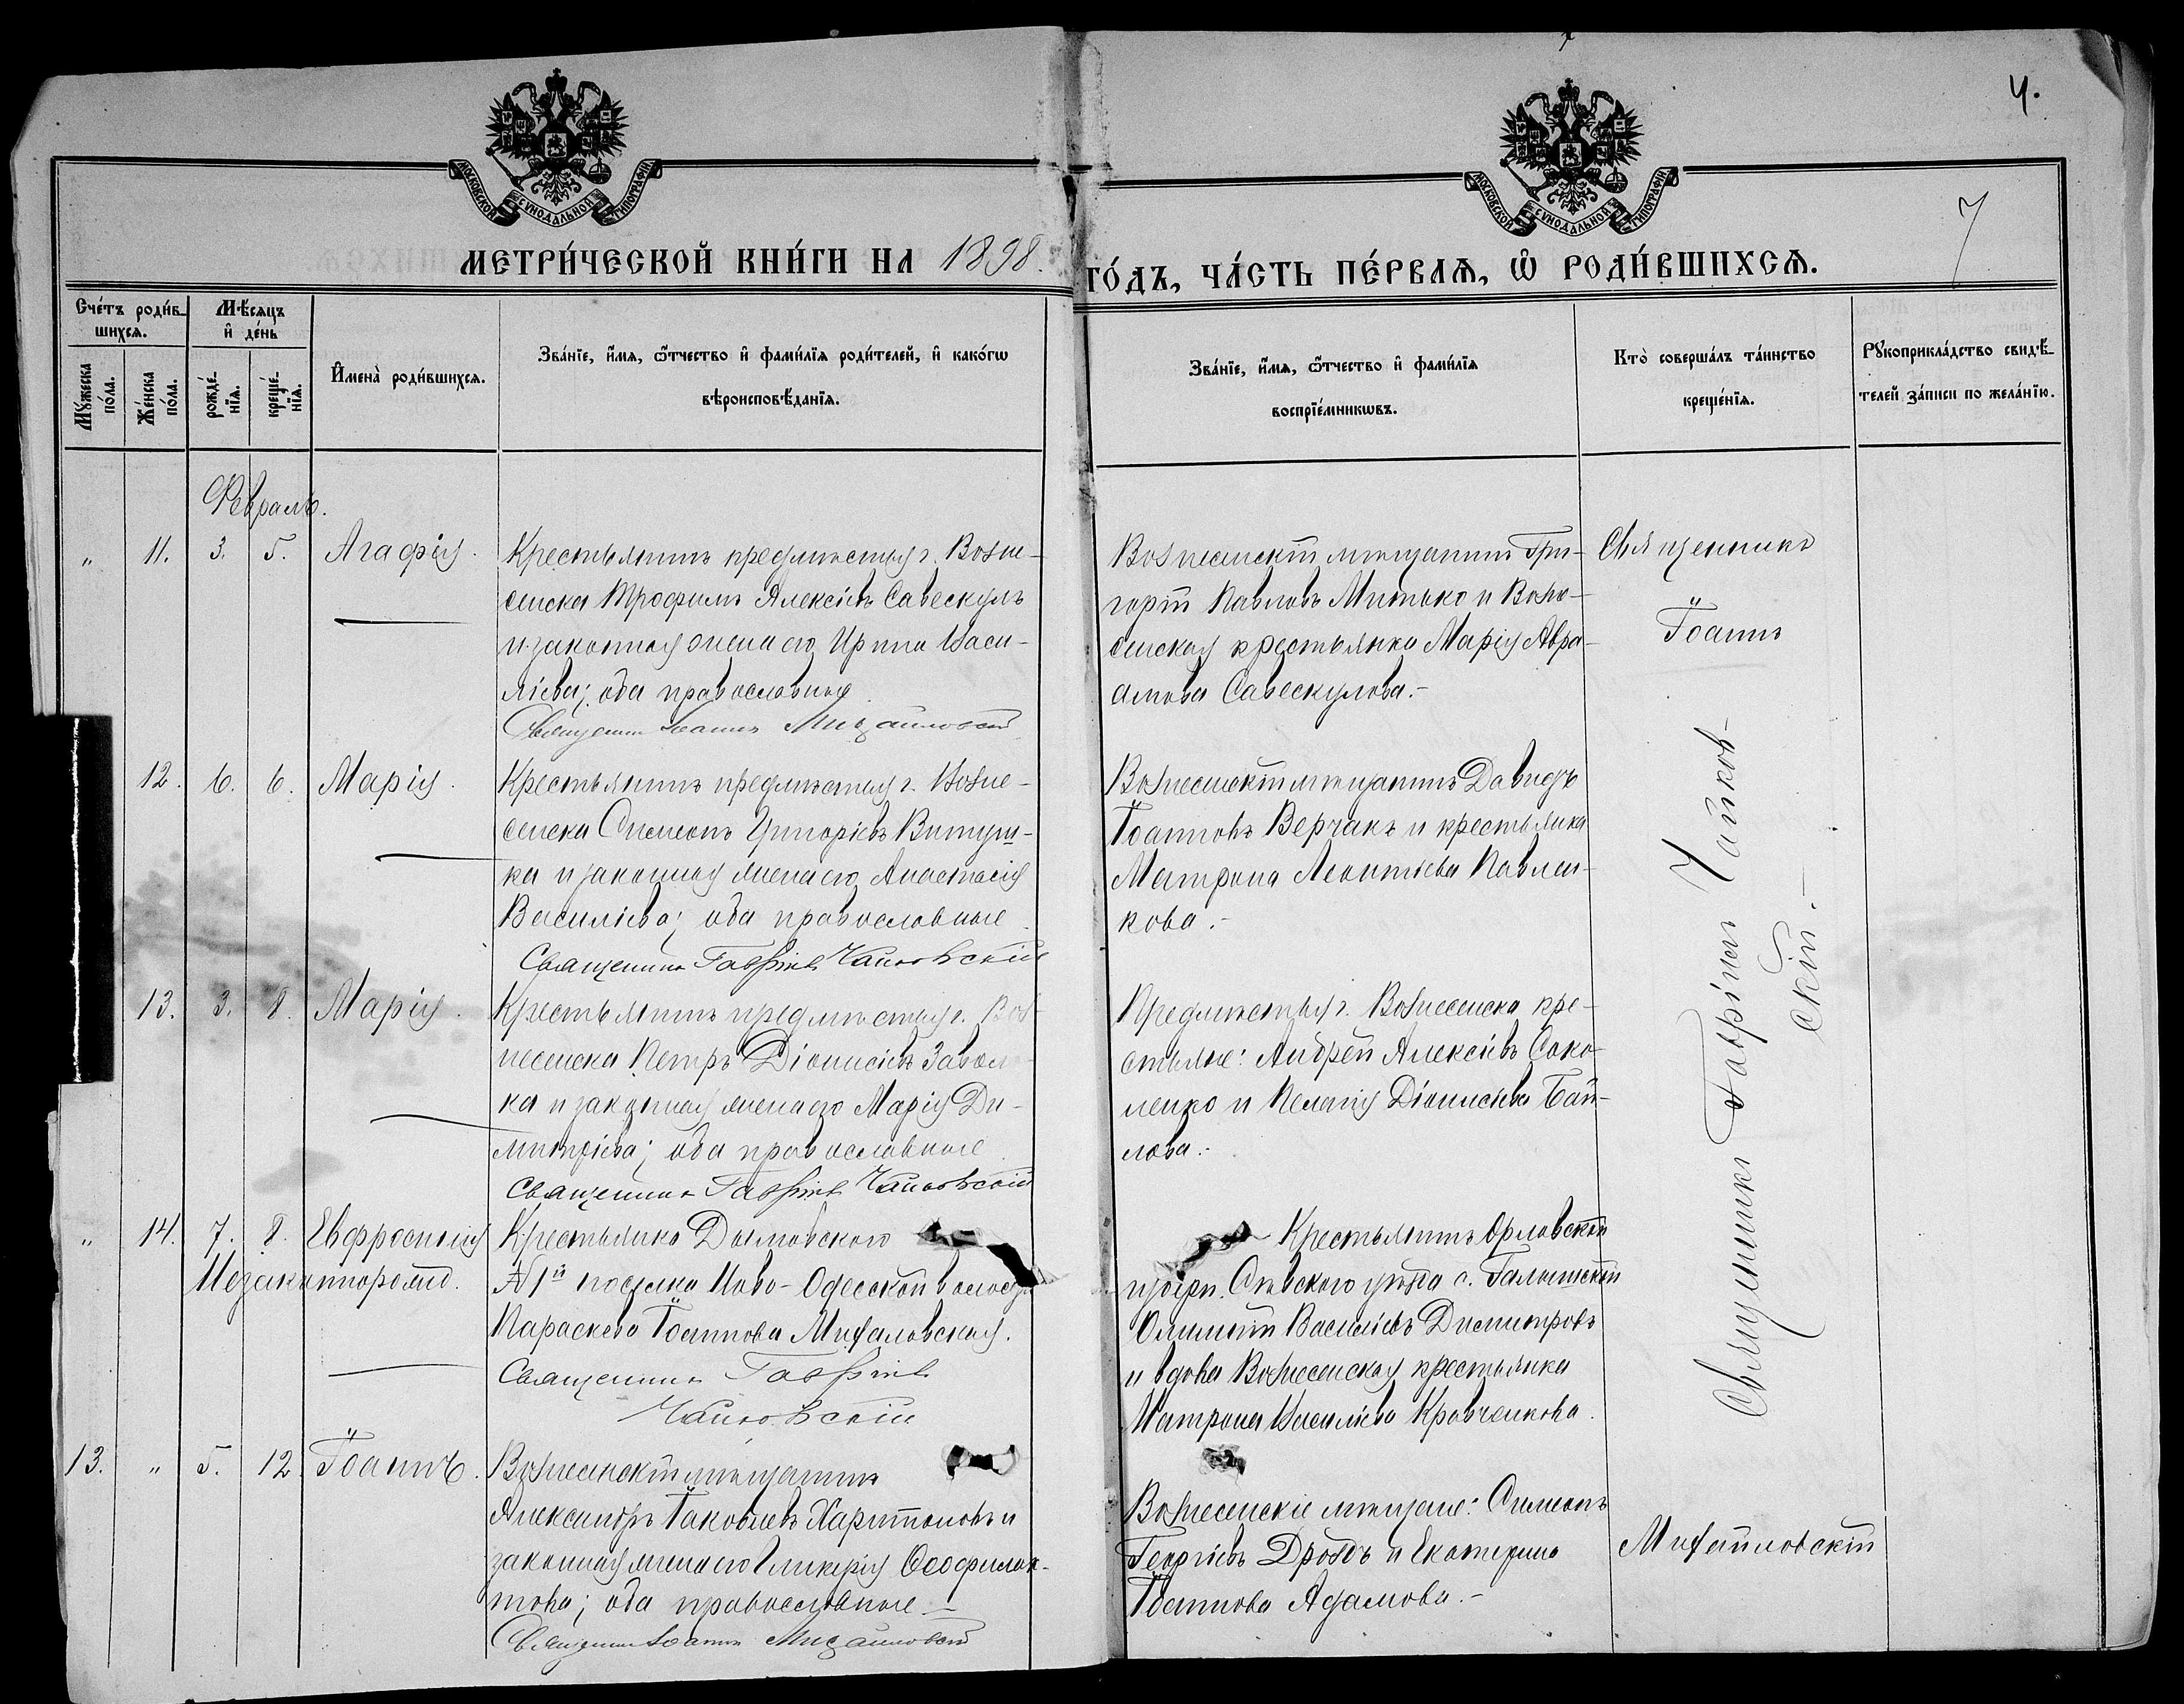 4.
7
МОСКОВСКОЙ СѴНОДАЛЬНОЙ ТИПОГРАФІИ
МОСКОВСКОЙ СѴНОДАЛЬНОЙ ТИПОГРАФІИ
МЕТРИ́ЧЕСКОЙ КНИ́ГИ НА 1898.
ГО́ДЪ, ЧА́СТЬ ПЕ́РВАѦ, Ѡ҆ РОДИ́ВШИХСѦ.
Сче́тъ роди́в-
шихся.
Мꙋ́жеска
по́ла.
Же́нска
по́ла.
Мѣ́сяцъ
и҆ де́нь
рожде́-
нїя.
креще́-
нїя.
И҆мена̀ роди́вшихся.
Зва́нїе, и҆́мя, ѻ҆́тчество и҆ фами́лїя роди́телей, и҆ како́гѡ
вѣроисповѣ́данїя.
Зва́нїе, и҆́мя, ѻ҆́тчество и҆ фами́лїя
воспрїе́мникѡвъ.
Кто̀ соверша́лъ та́инство
креще́нїя.
Рꙋкоприкла́дство свидѣ́-
телей за́писи по жела́нїю.
Февраль.
" 11. 3. 5. Агафія.
Крестьянинъ предмѣстья г. Возне-
сенска Трофимъ Алексіевъ Савескулъ
и законная жена его Ирина Васи-
ліева; оба православные
Священник Іоаннъ Михайловскій
Вознесенскій мѣщанинъ Гри-
горій Павловъ Митько и Возне-
сенская крестьянка Марія Авра-
амова Савескулова.-
Священникъ
Іоаннъ
12. 6. 6. Марія.
Крестьянинъ предмѣстья г. Возне-
сенска Симеонъ Григоріевъ Витуш-
ка и законная жена его Анастасія
Василіева; оба православные
Священникъ Гавріилъ Чайковскій
Вознесенскій мѣщанинъ Давидъ
Іоанновъ Верчакъ и крестьянка
Матрона Леонтіева Павлен-
кова.-
13. 3. 8. Марія.
Крестьянинъ предмѣстья г. Воз-
несенска Петръ Діонисіевъ
ка и законная жена его Марія Ди-
митріева; оба православные
Священникъ Гавріилъ Чайковскій
Предмѣстья г. Вознесенска кре-
стьяне: Андрей Алексіевъ Соко-
ленко и Пелагія Діонисіева Бай-
лова.-
Священникъ Гавріилъ Чайков-
скій.-
" 14. 7. 8. Евфросинія
Незаконнорожд.
Крестьянка Дымовского
№ 1й поселка Ново-Одесской волости
Параскева Іоаннова Михаловская.
Священникъ Гавріилъ
Чайковскій
Крестьянинъ Орловской
губерн. Сѣвского уѣзда с.
Василіевъ Димитровъ
и вдова Вознесенская крестьянка
Матрона Василіева Кравченкова.
13. " 5. 12. Іоаннъ.
Вознесенскій мѣщанинъ
Александръ Іаковлевъ Харитоновъ и
законная жена его Гликерія Ѳеофилак-
това; оба православные.-
Священник Іоаннъ Михайловскій
Вознесенскіе мѣщане: Симеонъ
Георгіевъ Дроздъ и Екатерина
Іоаннова Адамова.-
Михайловскій